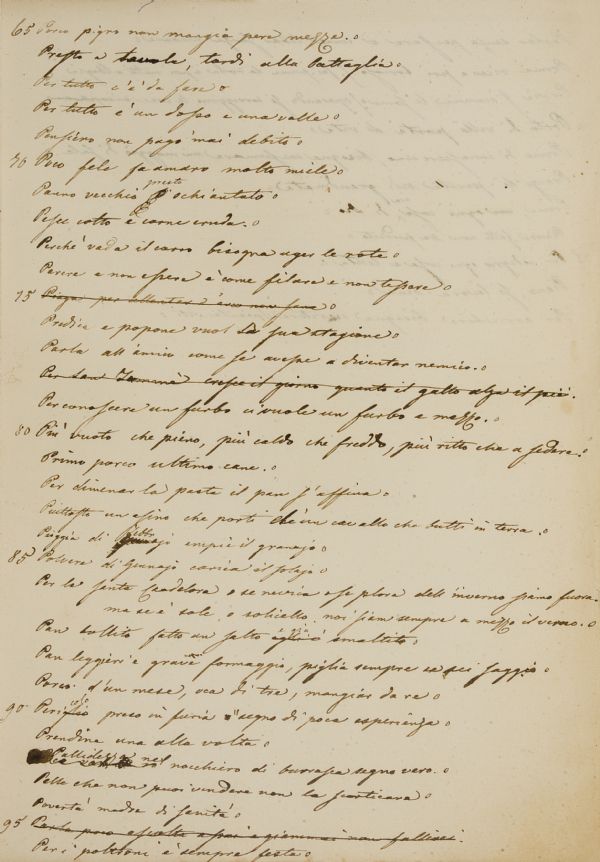 65 Porco pigro non mangia pere mezze.
Presto a tavola, tardi alla battaglia
Per tutto c'è da fare
Per tutto è un dosso e una valle
Pensiero non pagò mai debito
70 Poco fele fa amaro molto miele
Panno vecchio presto è schiantato
Pesce cotto e carne cruda.
Perchè vada il carro bisogna uger le rote
Parere e non essere è come filare e non tessere
75 Piaga per allentar d'arco non sana
Predica e popone vuol la sua stagione
Parla all'amico come se avesse a diventar nemico.
Per San Tommè cresce il giorno quanto il gallo alza il piè.
Per conoscere un furbo ci vuole un furbo e mezzo.
80 Più vuoto che pieno, più caldo che freddo, più ritto che a sedere.
Primo porco ultimo cane.
Per dimenar la pasta il pan s'affina
Piuttosto un asino che porti che un cavallo che butti in terra.
Pioggia di febbrajo empie il granajo
85 Polvere di Gennajo carica il solajo
Per la Santa Candelora o se nevica o se plora dell'inverno siamo fuora.
ma se è sole o solicello noi siam sempre a mezzo il verno.
Pan bollito fatto un salto è smaltito
Pan leggieri e grave formaggio, piglia sempre se sei saggio
Porco d'un mese, oca di tre, mangiar da re
90 preso in furia è segno di poca esperienza
Prendine una alla volta
Pallidezza nel nocchiero di burrasca segno vero.
Pelle che non puoi vendere non la scorticare
Povertà madre di sanità
95 Parla poco ascolta assai e giammai non fallirai.
Per i poltroni è sempre festa